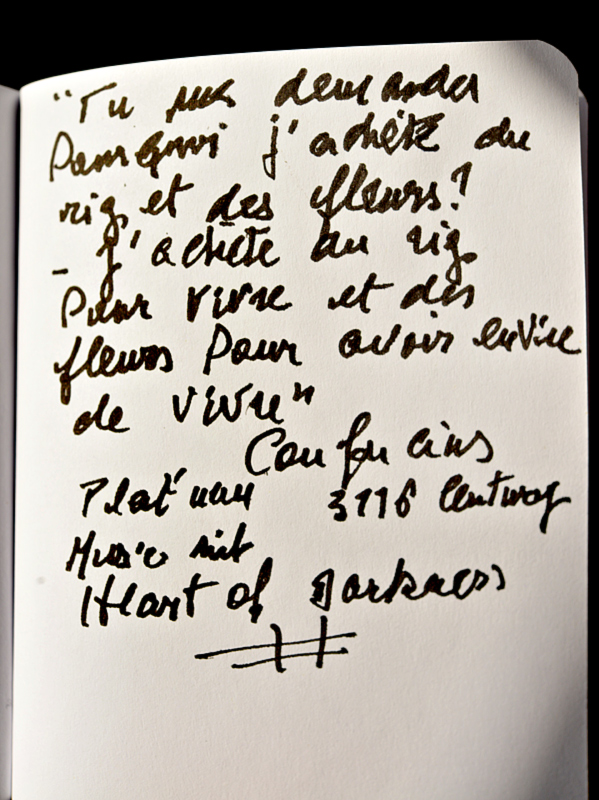 "Tu me demandes
Pourquoi j'achète du
riz et des fleurs?
- J'achète du riz
Pour vivre et des
fleurs Pour avoir envie
de vivre"
Confucius
Platinum 3776 Century
Music nib
Heart of Darkness